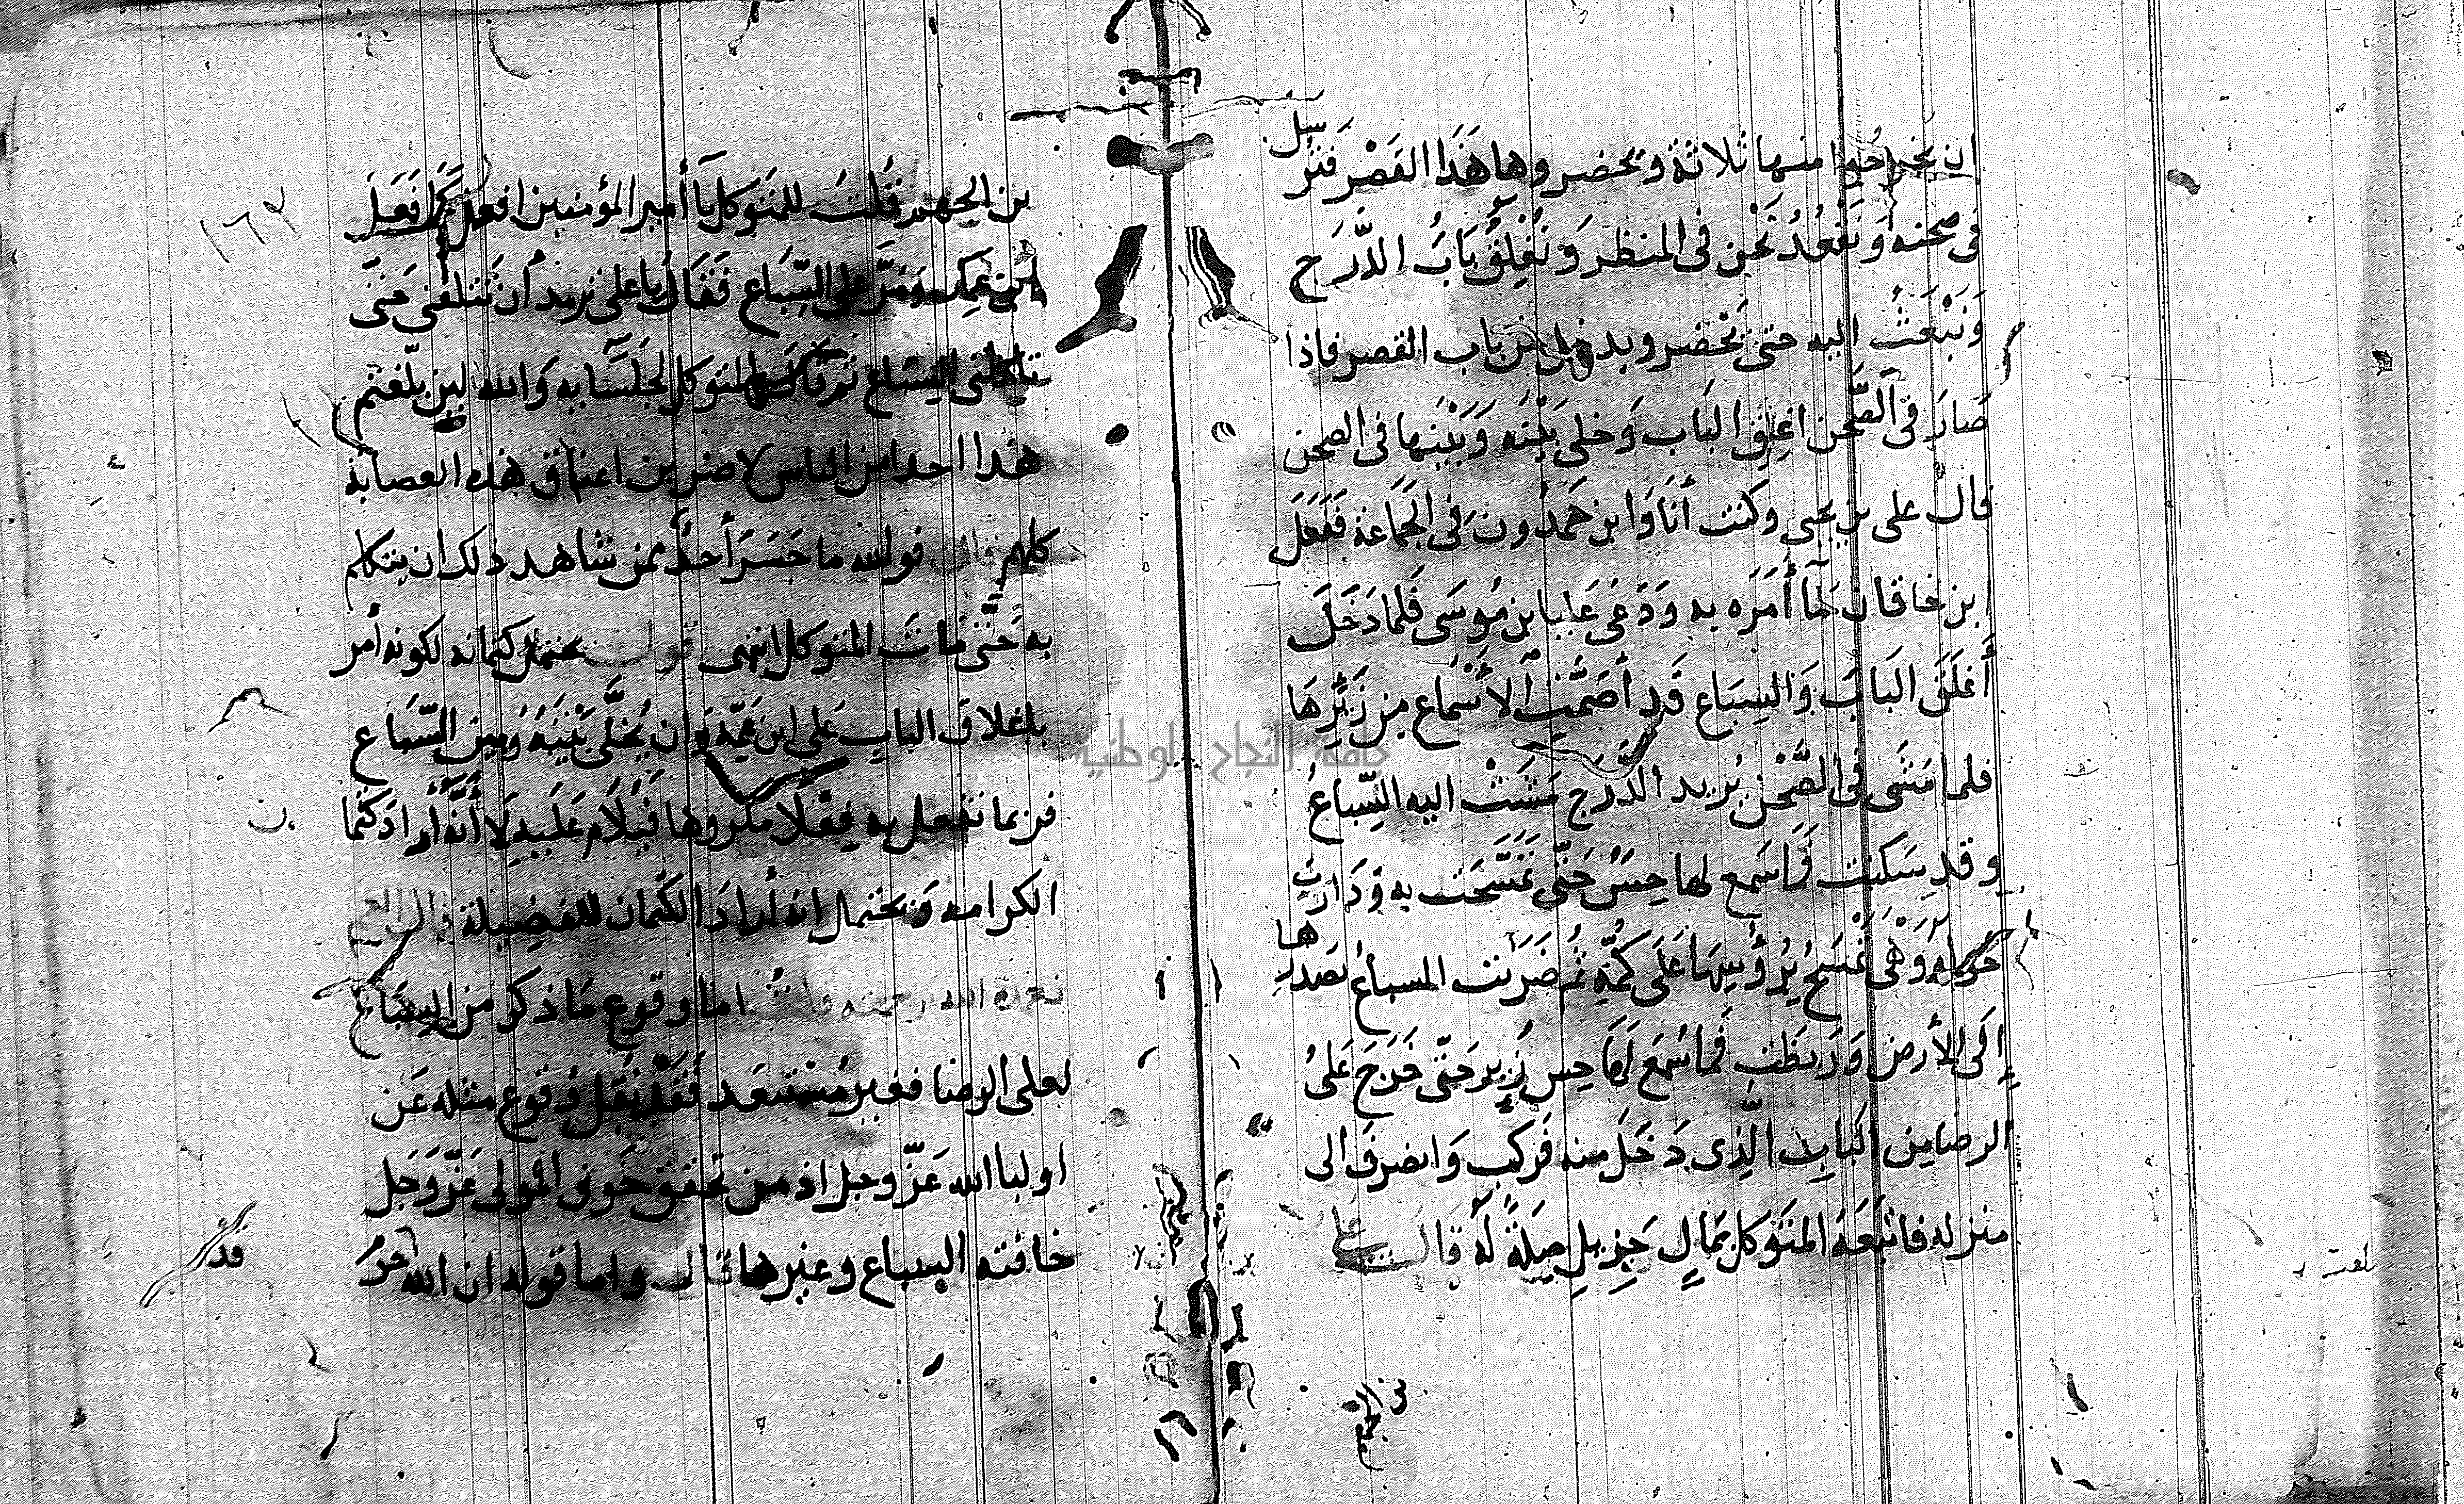 ان يخرجوا منها ثلاثة وتحضروها هَذَا القَصْر فتُرسل
في صحنه وَنَقْعُدُ نَحْن في المنظر وَنُغْلِقُ بَابُ الدَّرَج
وَنَبْعَثُ اليه حتى يَحْضر ويدخل من باب القصر فاذا
صَارَ في الصَّحْن اغلق البَاب وَخلى بَيْنَه وَبَيْنَها في الصحن
قال على بن يحيى وكنت أنَا وَابن حَمدُون في الجَمَاعَة فَفَعَلَ
ابن خاقان مَا أمَرَه به وَدَعَى عَليا بن مُوسَى فَلما دَخَلَ
أغلَقَ البَابَ وَالسِبَاع قَد أصَمَّت الأسْماع مِن زَئيْرِهَا
فلما مَشَى في الصَّحْن يُريد الدَّرَج مَشَتْ اليه السِّباعُ
وقد سَكنت فَمَا سَمع لها حِسّ حَتّى تَمَسَّحَت به وَدَارت
حَوله وَهْىَ تمْسَحُ برُؤسِهَا عَلَى كُمّه ثُمَّ ضَرَبَت السباعُ بصَدرها
إِلَى الأرض وَرَبَظَت فَما سُمعَ لهَا حِس زَئير حَتّى خَرَجَ عَلىُ
الرضا مِن البَاب الّذِى دَخَلَ منه فَركبَ وَانصَرفَ الى
منزله فاتبَعَهُ المتَوَكل بمَالٍ جَزِيلٍ صِلَةً لَه قَالَ علي
بن الجهم
بن الجهم قُلتُ للمتَوكل يَا أمير المؤمنين افعل كَمَا فَعَلَ
ابن عَمِك وَمُرَّ على السِّبَاع فَقَالَ يَا على تريد أن تتلفني حَتىَ
تأكلني السِبَاع ثم قَالَ المتوكل لجُلَسَايه وَالله لين بلّغتم
هَذا احدا من الناس لاضربن اعناق هذه العصابة
كلهم قال فوالله ما جَسَرَ أحَدٌ ممن شاهد ذلك ان يتكلم
به حَتَّى مَاتَ المتوكل انتهى قوله يحتمل كتمانه لكونه أمر
باغلاق الباب عَلى ابن عَمّه وَان يُخَلَّى بَيْنَهُ وَبين السّبَاع
فربما تفعل به فِعْلا مكروها فَيُلاَم عَلَيه لاَ أنَّه أرادَ كتما
ن
الكرامه وَيحتمل انه أرادَ الكتمان للفضيلة قال
الله رحمته اما وقوع مَا ذكر من السِبَاع
لعلى الرضا فغير مُستَبْعَد فَقَدْ نُقِلَ وُقوع مثله عَن
اوليا الله عَزّ وجل اذ من تحقق خَوف المولى عَزّ وَجَل
خافته السباع وغيرها قال واما قوله ان الله حرّ
قد
١٦٢
جامعة النجاح الوطنية